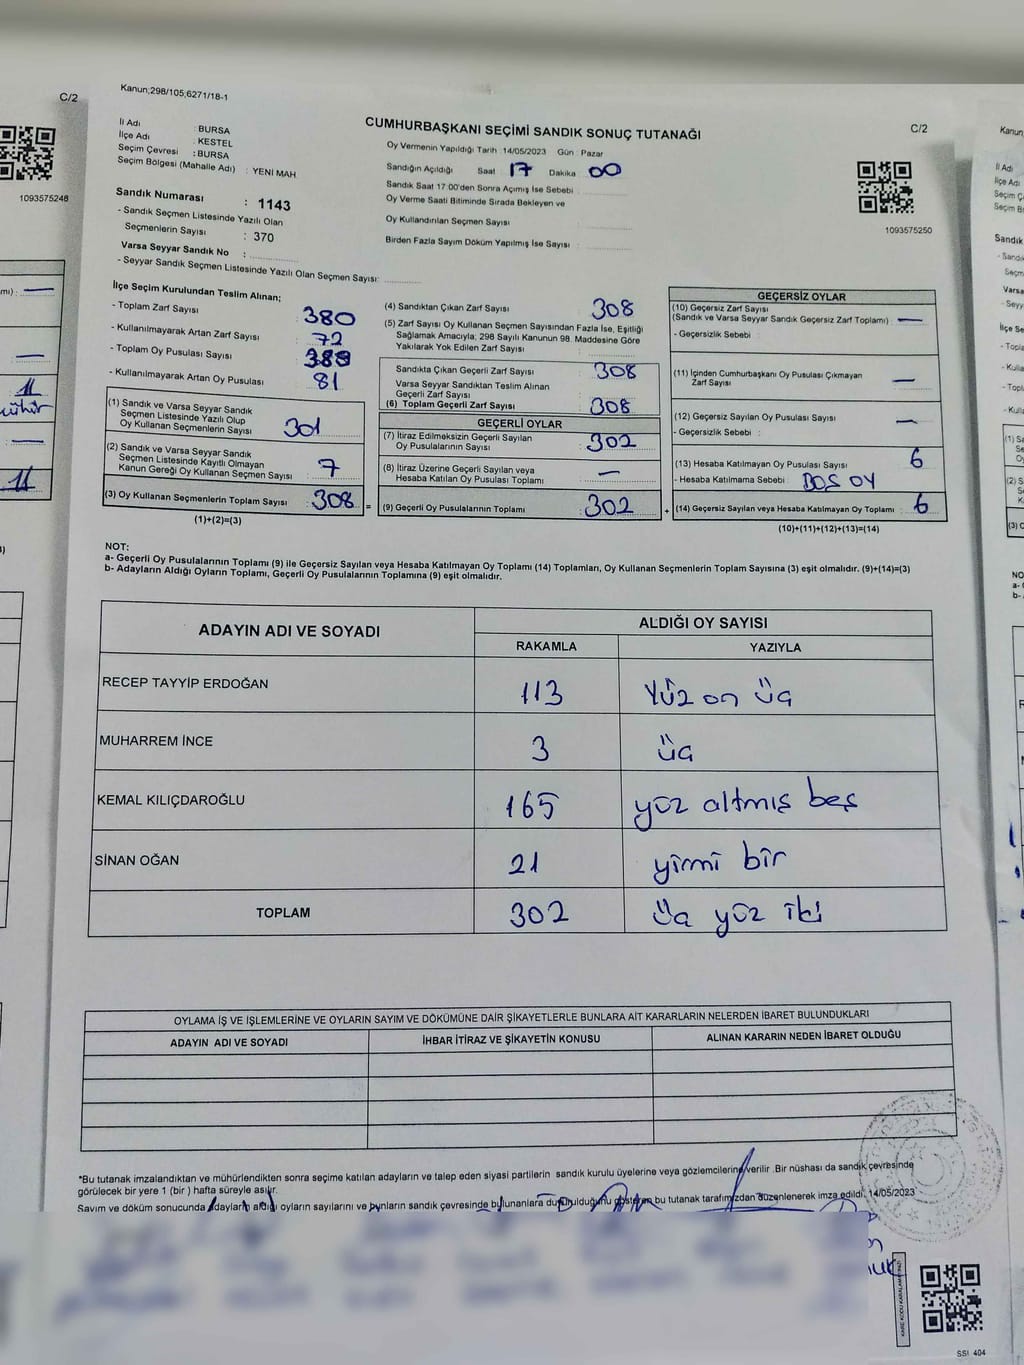 Kanun;298/105;6271/18-1
C/2
İl Adı : BURSA
İlçe Adı : KESTEL
Seçim Çevresi : BURSA
Seçim Bölgesi (Mahalle Adı) : YENİ MAH
CUMHURBAŞKANI SEÇİMİ SANDIK SONUÇ TUTANAĞI
C/2
Oy Vermenin Yapıldığı Tarih : 14/05/2023 Gün : Pazar
Sandığın Açıldığı Saat : 17 Dakika : 00
Sandık Saat 17:00'den Sonra Açımış İse Sebebi :
Oy Verme Saati Bitiminde Sırada Bekleyen ve
Oy Kullandırılan Seçmen Sayısı :
Birden Fazla Sayım Döküm Yapılmış İse Sayısı :
1093575250
1093575248
Sandık Numarası : 1143
- Sandık Seçmen Listesinde Yazılı Olan
Seçmenlerin Sayısı : 370
Varsa Seyyar Sandık No :
- Seyyar Sandık Seçmen Listesinde Yazılı Olan Seçmen Sayısı:
İlçe Seçim Kurulundan Teslim Alınan;
- Toplam Zarf Sayısı : 380
- Kullanılmayarak Artan Zarf Sayısı : 72
- Toplam Oy Pusulası Sayısı
- Kullanılmayarak Artan Oy Pusulası : 81
(1) Sandık ve Varsa Seyyar Sandık
Seçmen Listesinde Yazılı Olup
Oy Kullanan Seçmenlerin Sayısı : 301
(2) Sandık ve Varsa Seyyar Sandık
Seçmen Listesinde Kayıtlı Olmayan
Kanun Gereği Oy Kullanan Seçmen Sayısı : 7
(3) Oy Kullanan Seçmenlerin Toplam Sayısı : 308
(1)+(2)=(3)
(4) Sandıktan Çıkan Zarf Sayısı : 308
(5) Zarf Sayısı Oy Kullanan Seçmen Sayısından Fazla İse, Eşitliği
Sağlamak Amacıyla; 298 Sayılı Kanunun 98. Maddesine Göre
Yakılarak Yok Edilen Zarf Sayısı :
Sandıkta Çıkan Geçerli Zarf Sayısı : 308
Varsa Seyyar Sandıktan Teslim Alınan
Geçerli Zarf Sayısı :
(6) Toplam Geçerli Zarf Sayısı : 308
GEÇERLİ OYLAR
(7) İtiraz Edilmeksizin Geçerli Sayılan
Oy Pusulalarının Sayısı : 302
(8) İtiraz Üzerine Geçerli Sayılan veya
Hesaba Katılan Oy Pusulası Toplamı : —
= (9) Geçerli Oy Pusulalarının Toplamı : 302 +
GEÇERSİZ OYLAR
(10) Geçersiz Zarf Sayısı
(Sandık ve Varsa Seyyar Sandık Geçersiz Zarf Toplamı) : —
- Geçersizlik Sebebi :
(11) İçinden Cumhurbaşkanı Oy Pusulası Çıkmayan
Zarf Sayısı : —
(12) Geçersiz Sayılan Oy Pusulası Sayısı : —
- Geçersizlik Sebebi :
(13) Hesaba Katılmayan Oy Pusulası Sayısı : 6
- Hesaba Katılmama Sebebi : BOŞ OY
(14) Geçersiz Sayılan veya Hesaba Katılmayan Oy Toplamı : 6
(10)+(11)+(12)+(13)=(14)
NOT:
a- Geçerli Oy Pusulalarının Toplamı (9) ile Geçersiz Sayılan veya Hesaba Katılmayan Oy Toplamı (14) Toplamları, Oy Kullanan Seçmenlerin Toplam Sayısına (3) eşit olmalıdır. (9)+(14)=(3)
b- Adayların Aldığı Oyların Toplamı, Geçerli Oy Pusulalarının Toplamına (9) eşit olmalıdır.
ADAYIN ADI VE SOYADI ALDIĞI OY SAYISI
RAKAMLA YAZIYLA
RECEP TAYYİP ERDOĞAN 113 Yüz on üç
MUHARREM İNCE 3 üç
KEMAL KILIÇDAROĞLU 165 yüz altmış beş
SİNAN OĞAN 21 yirmi bir
TOPLAM 302 üç yüz iki
OYLAMA İŞ VE İŞLEMLERİNE VE OYLARIN SAYIM VE DÖKÜMÜNE DAİR ŞİKAYETLERLE BUNLARA AİT KARARLARIN NELERDEN İBARET BULUNDUKLARI
ADAYIN ADI VE SOYADI İHBAR İTİRAZ VE ŞİKAYETİN KONUSU ALINAN KARARIN NEDEN İBARET OLDUĞU
*Bu tutanak imzalandıktan ve mühürlendikten sonra seçime katılan adayların ve talep eden siyasi partilerin sandık kurulu üyelerine veya gözlemcilerine verilir .Bir nüshası da sandık çevresinde
görülecek bir yere 1 (bir ) hafta süreyle asılır.
Sayım ve döküm sonucunda adayların aldığı oyların sayılarını ve bunların sandık çevresinde bulunanlara duyurulduğunu gösteren bu tutanak tarafımızdan düzenlenerek imza edildi. 14/05/2023
SSI 404